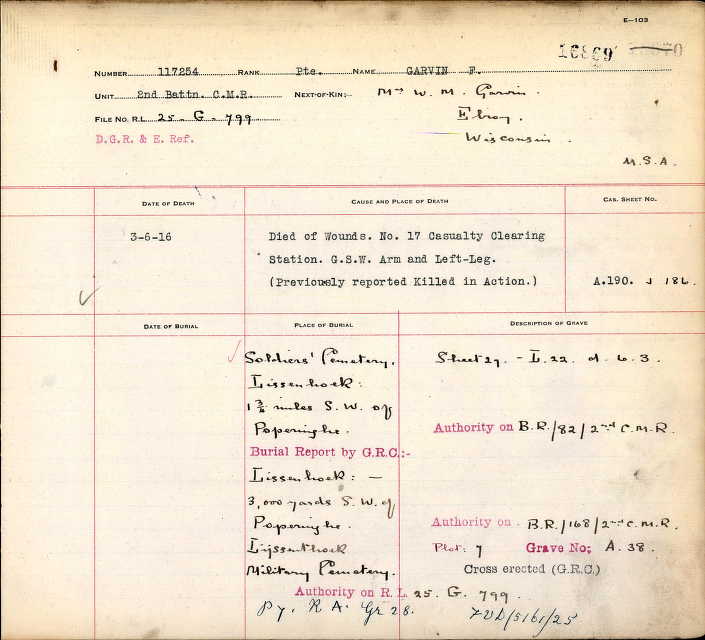 E-103
16869
NUMBER 117254 RANK Pte. NAME GARVIN F.
UNIT 2nd Battn. C.M.R. NEXT-OF-KIN:- Mrs W. M. Garvin.
FILE NO. R.L. 25. G. 799 Elroy.
D.G.R. & E. Ref. Wisconsin.
U.S.A.
DATE OF DEATH CAUSE AND PLACE OF DEATH CAS. SHEET NO.
3-6-16 Died of Wounds. No. 17 Casualty Clearing
Station. G.S.W. Arm and Left-Leg.
(Previously reported Killed in Action.) A.190. J 186.
DATE OF BURIAL PLACE OF BURIAL DESCRIPTION OF GRAVE
Soldiers' Cemetery, Sheet 27. - L. 22. d. 6. 3.
Lissenhoek:
miles S. W. of
Poperinghe. Authority on B.R./82/2nd C.M.R.
Burial Report by G.R.C.:-
Lissenhoek: —
3,000 yards S. W. of
Poperinghe. Authority on B.R./168/2nd C.M.R.
Lijssenthoek Plot: 7 Grave No; A. 38.
Military Cemetery. Cross erected (G.R.C.)
Authority on R.L. 25. G. 799.
R. A. Gr 28.